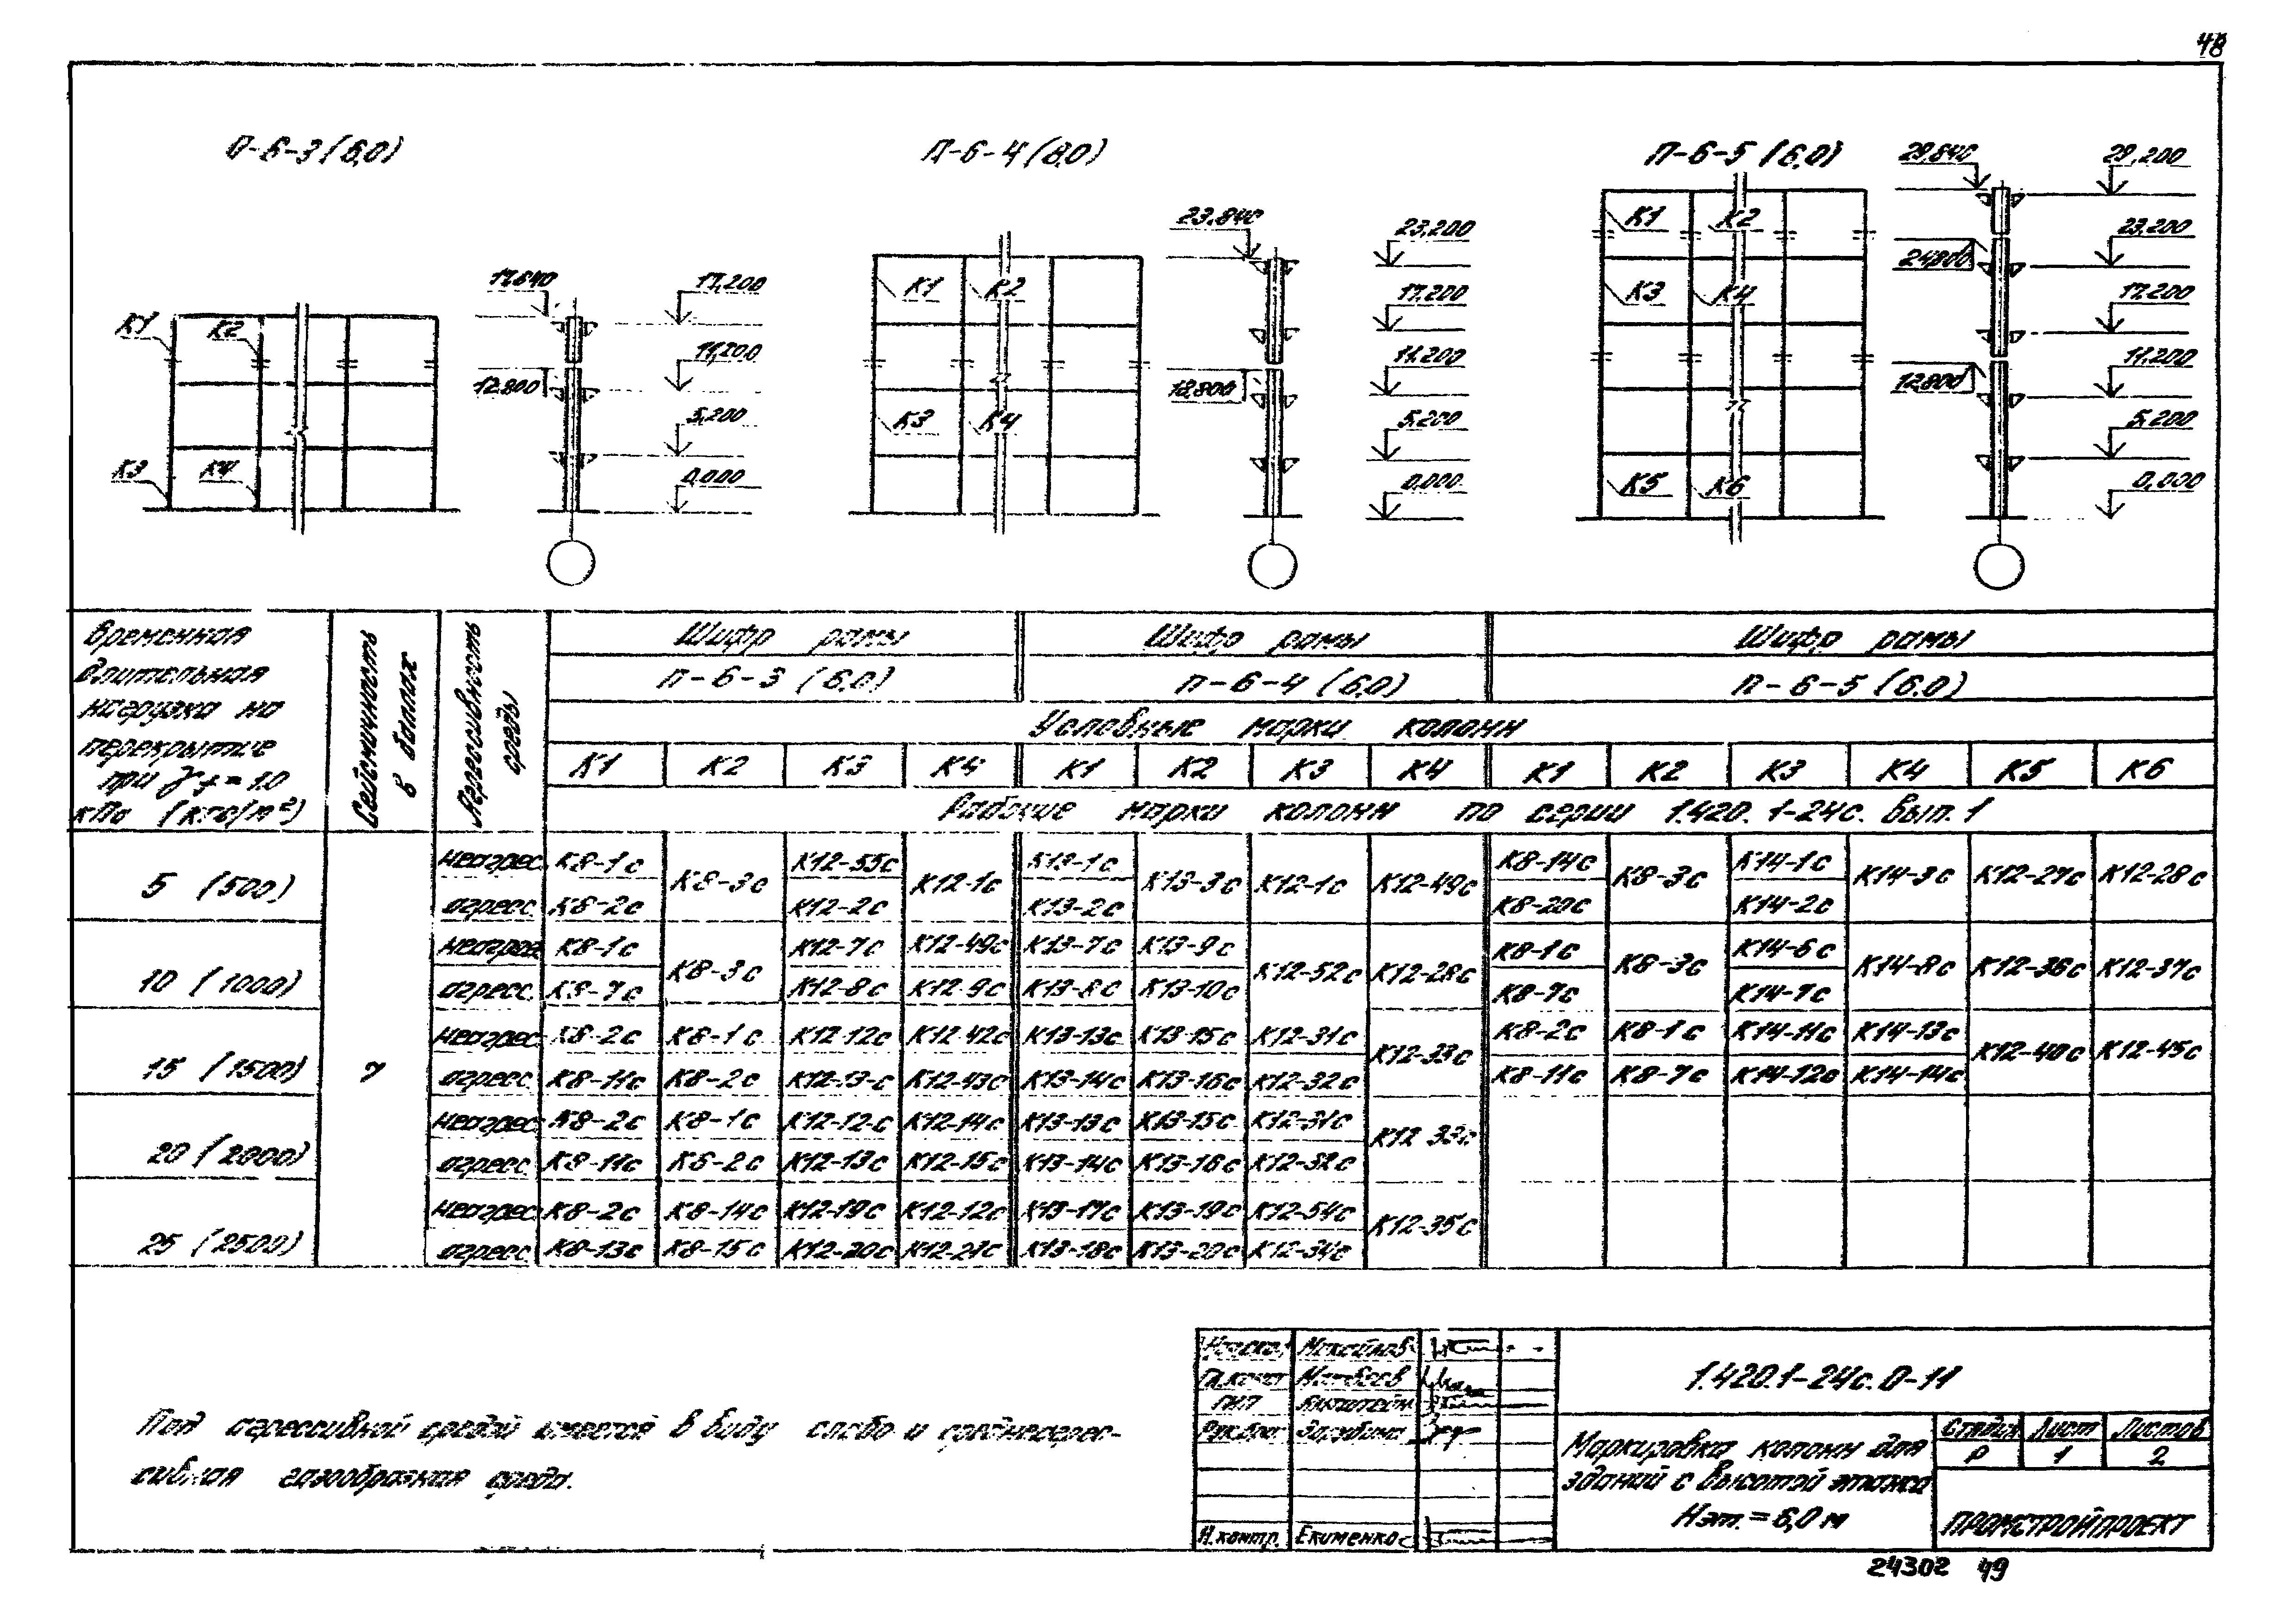 48
П-6-3 (6,0)
П-6-4 (6,0)
П-6-5 (6,0)
К1
К2
К3
К4
17,640
12,800
17,200
11,200
5,200
0,000
К1
К2
К3
К4
23,840
23,200
17,200
11,200
5,200
0,000
К1
К2
К3
К4
К5
К6
29,840
24,800
12,800
29,200
23,200
17,200
11,200
5,200
0,000
Временная длительная нагрузка на перекрытие при γf = 1.0 кПа (кгс/м²)
Сейсмичность в баллах
Агрессивность среды
Шифр рамы
Шифр рамы
Шифр рамы
П-6-3 (6,0)
П-6-4 (6,0)
П-6-5 (6,0)
Условные марки колонн
К1 К2 К3 К4 К1 К2 К3 К4 К1 К2 К3 К4 К5 К6
Рабочие марки колонн по серии 1.420.1-24с. Вып. 1
5 (500)
неагрес. К8-1с К8-3с К12-55с К12-1с К13-1с К13-3с К12-1с К12-49с К8-14с К8-3с К14-1с К14-3с К12-27с К12-28с
агресс. К8-2с К12-2с К13-2с К8-20с К14-2с
10 (1000)
неагрес. К8-1с К8-3с К12-7с К12-49с К13-7с К13-9с К12-52с К12-28с К8-1с К8-3с К14-6с К14-8с К12-36с К12-37с
агресс. К8-7с К12-8с К12-9с К13-8с К13-10с К8-7с К14-7с
15 (1500)
7
неагрес. К8-2с К8-1с К12-12с К12-42с К13-13с К13-15с К12-31с К12-33с К8-2с К8-1с К14-11с К14-13с К12-40с К12-45с
агресс. К8-11с К8-2с К12-13-с К12-43с К13-14с К13-16с К12-32с К8-11с К8-7с К14-12с К14-14с
20 (2000)
неагрес. К8-2с К8-1с К12-12-с К12-14с К13-13с К13-15с К12-31с К12-33с
агресс. К8-11с К8-2с К12-13с К12-15с К13-14с К13-16с К12-32с
25 (2500)
неагрес. К8-2с К8-14с К12-19с К12-12с К13-17с К13-19с К12-54с К12-35с
агресс. К8-13с К8-15с К12-20с К12-21с К13-18с К13-20с К12-34с
Под агрессивной средой имеется в виду слабо и среднеагрес-
сивная газообразная среда.
Матвеев
ГИП
Зарубина
Н.контр. Екименко
1.420.1-24с.0-11
Маркировка колонн для
зданий с высотой этажа
Нэт. = 6,0 м
Стадия Лист Листов
Р 1 2
ПРОМСТРОЙПРОЕКТ
24302 49